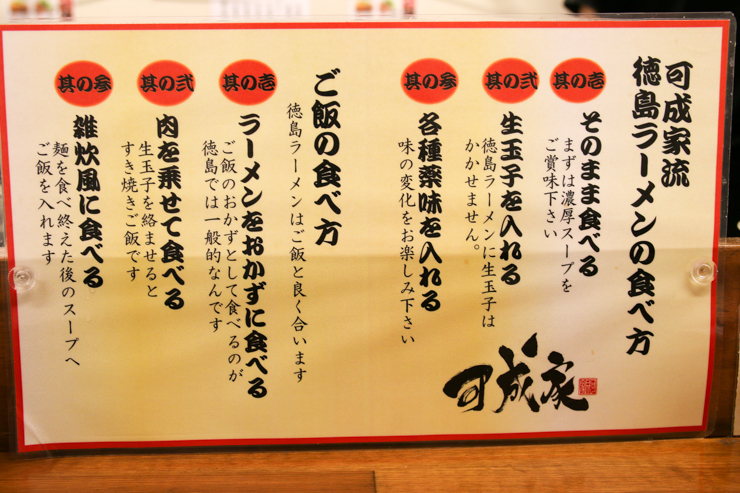 可成家流
徳島ラーメンの食べ方
其の壱
そのまま食べる
まずは濃厚スープを
ご賞味下さい
其の弐
生玉子を入れる
徳島ラーメンに生玉子は
かかせません。
其の参
各種薬味を入れる
味の変化をお楽しみ下さい
可成家
ご飯の食べ方
徳島ラーメンはご飯と良く合います
其の壱
ラーメンをおかずに食べる
ご飯のおかずとして食べるのが
徳島では一般的なんです
其の弐
肉を乗せて食べる
生玉子を絡ませると
すき焼きご飯です
其の参
雑炊風に食べる
麺を食べ終えた後のスープへ
ご飯を入れます